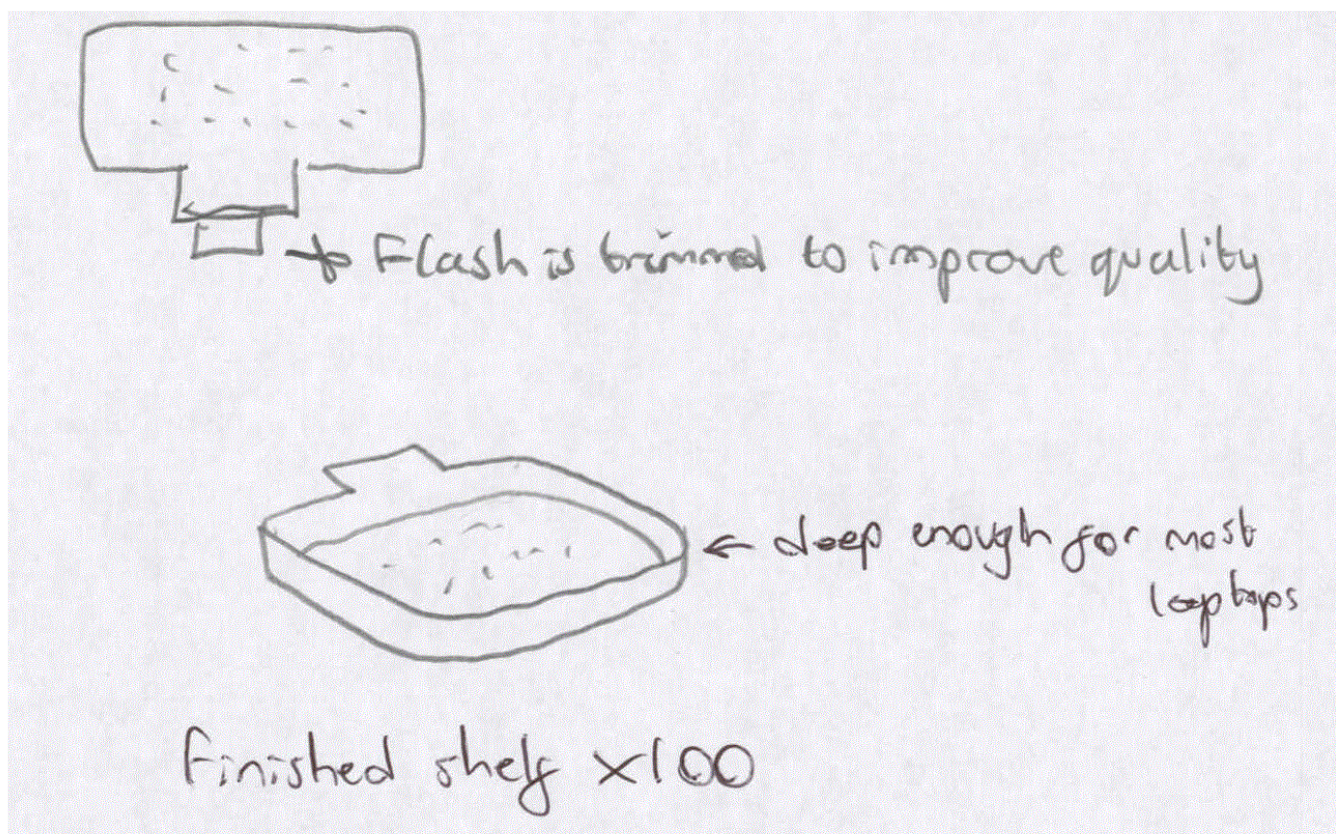 Flash is trimmed to improve quality
deep enough for most
laptops
Finished shelf x100